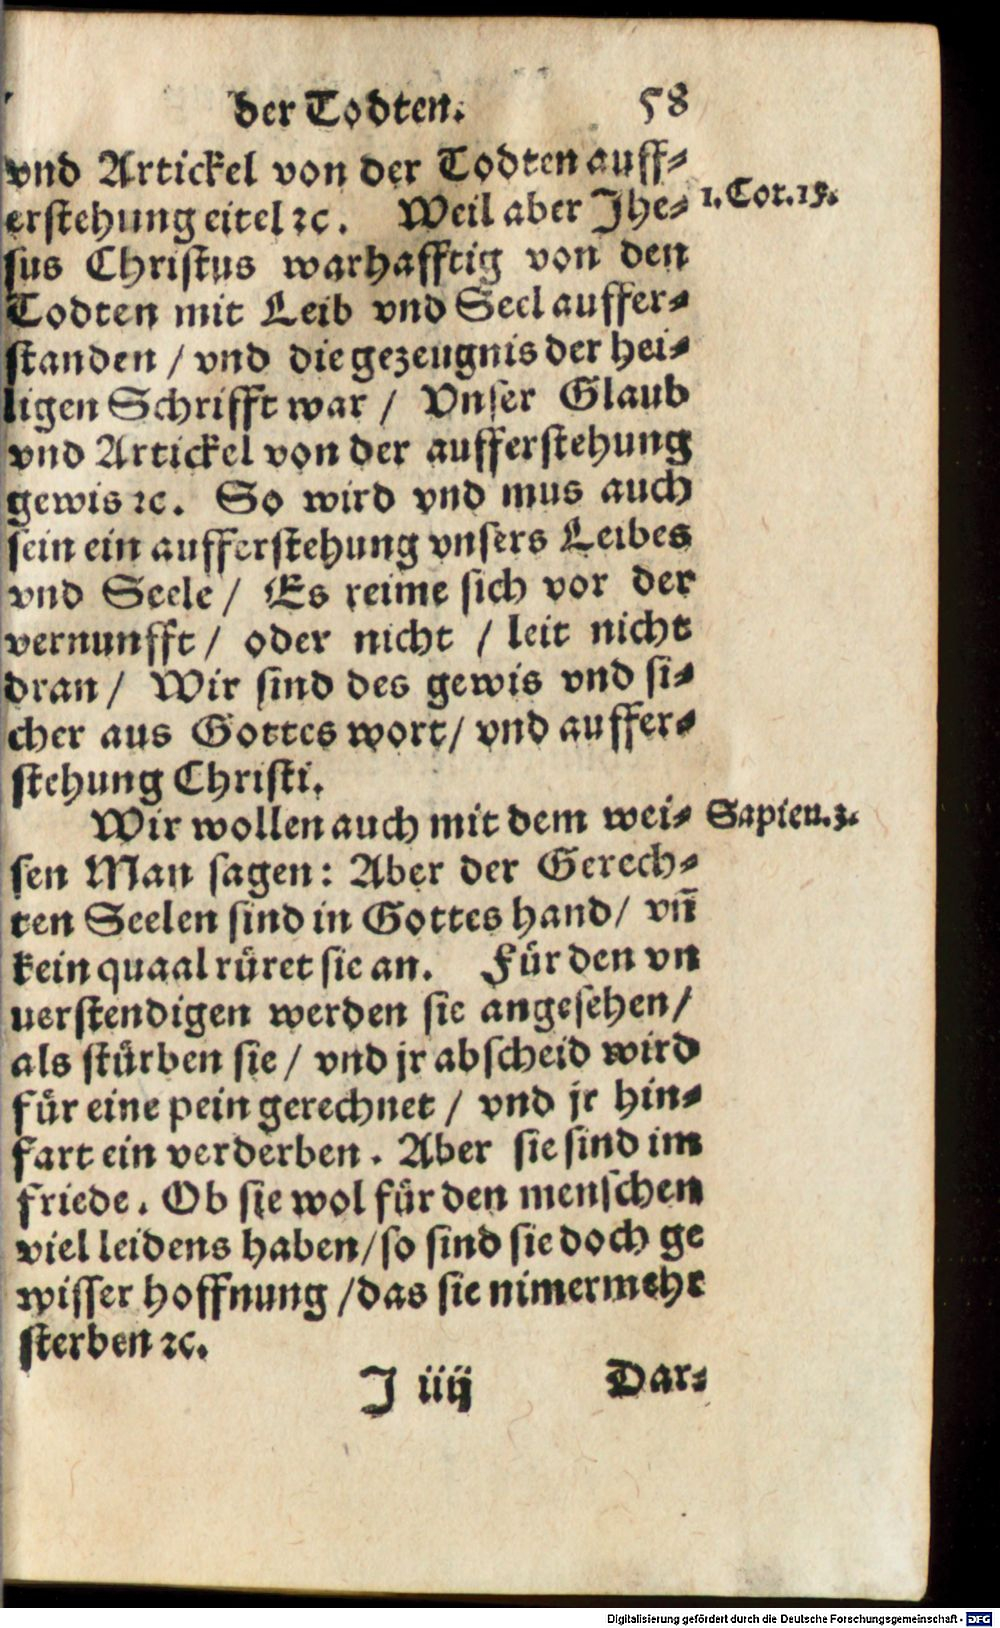 der Todten. 58
vnd Artickel von der Todten auff-
erstehung eitel ꝛc. Weil aber Jhe- 1. Cor. 15.
sus Christus warhafftig von den
Todten mit Leib vnd Seel auffer-
standen / vnd die gezeugnis der hei-
ligen Schrifft war / Vnser Glaub
vnd Artickel von der aufferstehung
gewis ꝛc. So wird vnd mus auch
sein ein aufferstehung vnsers Leibes
vnd Seele / Es reime sich vor der
vernunfft / oder nicht / leit nicht
dran / Wir sind des gewis vnd si-
cher aus Gottes wort / vnd auffer-
stehung Christi.
Wir wollen auch mit dem wei- Sapien. 3.
sen Man sagen: Aber der Gerech-
ten Seelen sind in Gottes hand / vñ
kein quaal rüret sie an. Für den vn
uerstendigen werden sie angesehen /
als stürben sie / vnd jr abscheid wird
für eine pein gerechnet / vnd jr hin-
fart ein verderben. Aber sie sind im
friede. Ob sie wol für den menschen
viel leidens haben / so sind sie doch ge
wisser hoffnung / das sie nimermehr
sterben ꝛc.
J iiij Dar-
Digitalisierung gefördert durch die Deutsche Forschungsgemeinschaft - DFG